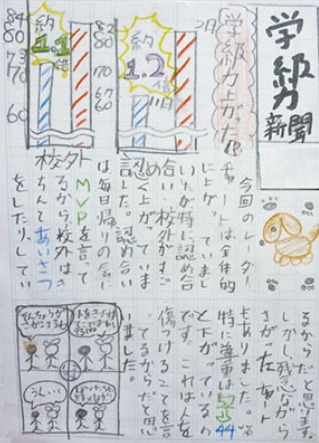 学級力
新聞
学級力上がった!?
2月
11月
約
1.2
倍
80
70
67
60
約
1.1
倍
84
80
73
70
60
今回のレーダー
チャートは全体的
に上がっていまし
た。特に認め
合い、校外がすご
く上がっていま
認
した。認め合い
は毎日帰りの会に
MVPを言って
るから校外はき
ちんとあいさつ
をしたり、してい
校外
るからだと思います。
しかし、残念ながら
さがったハート
もありました。
特に尊重は52→44
と下がっている
です。これは人を
傷けることを言
ってるからだと思
いました。
そんちょうが
さがってるね
うん…